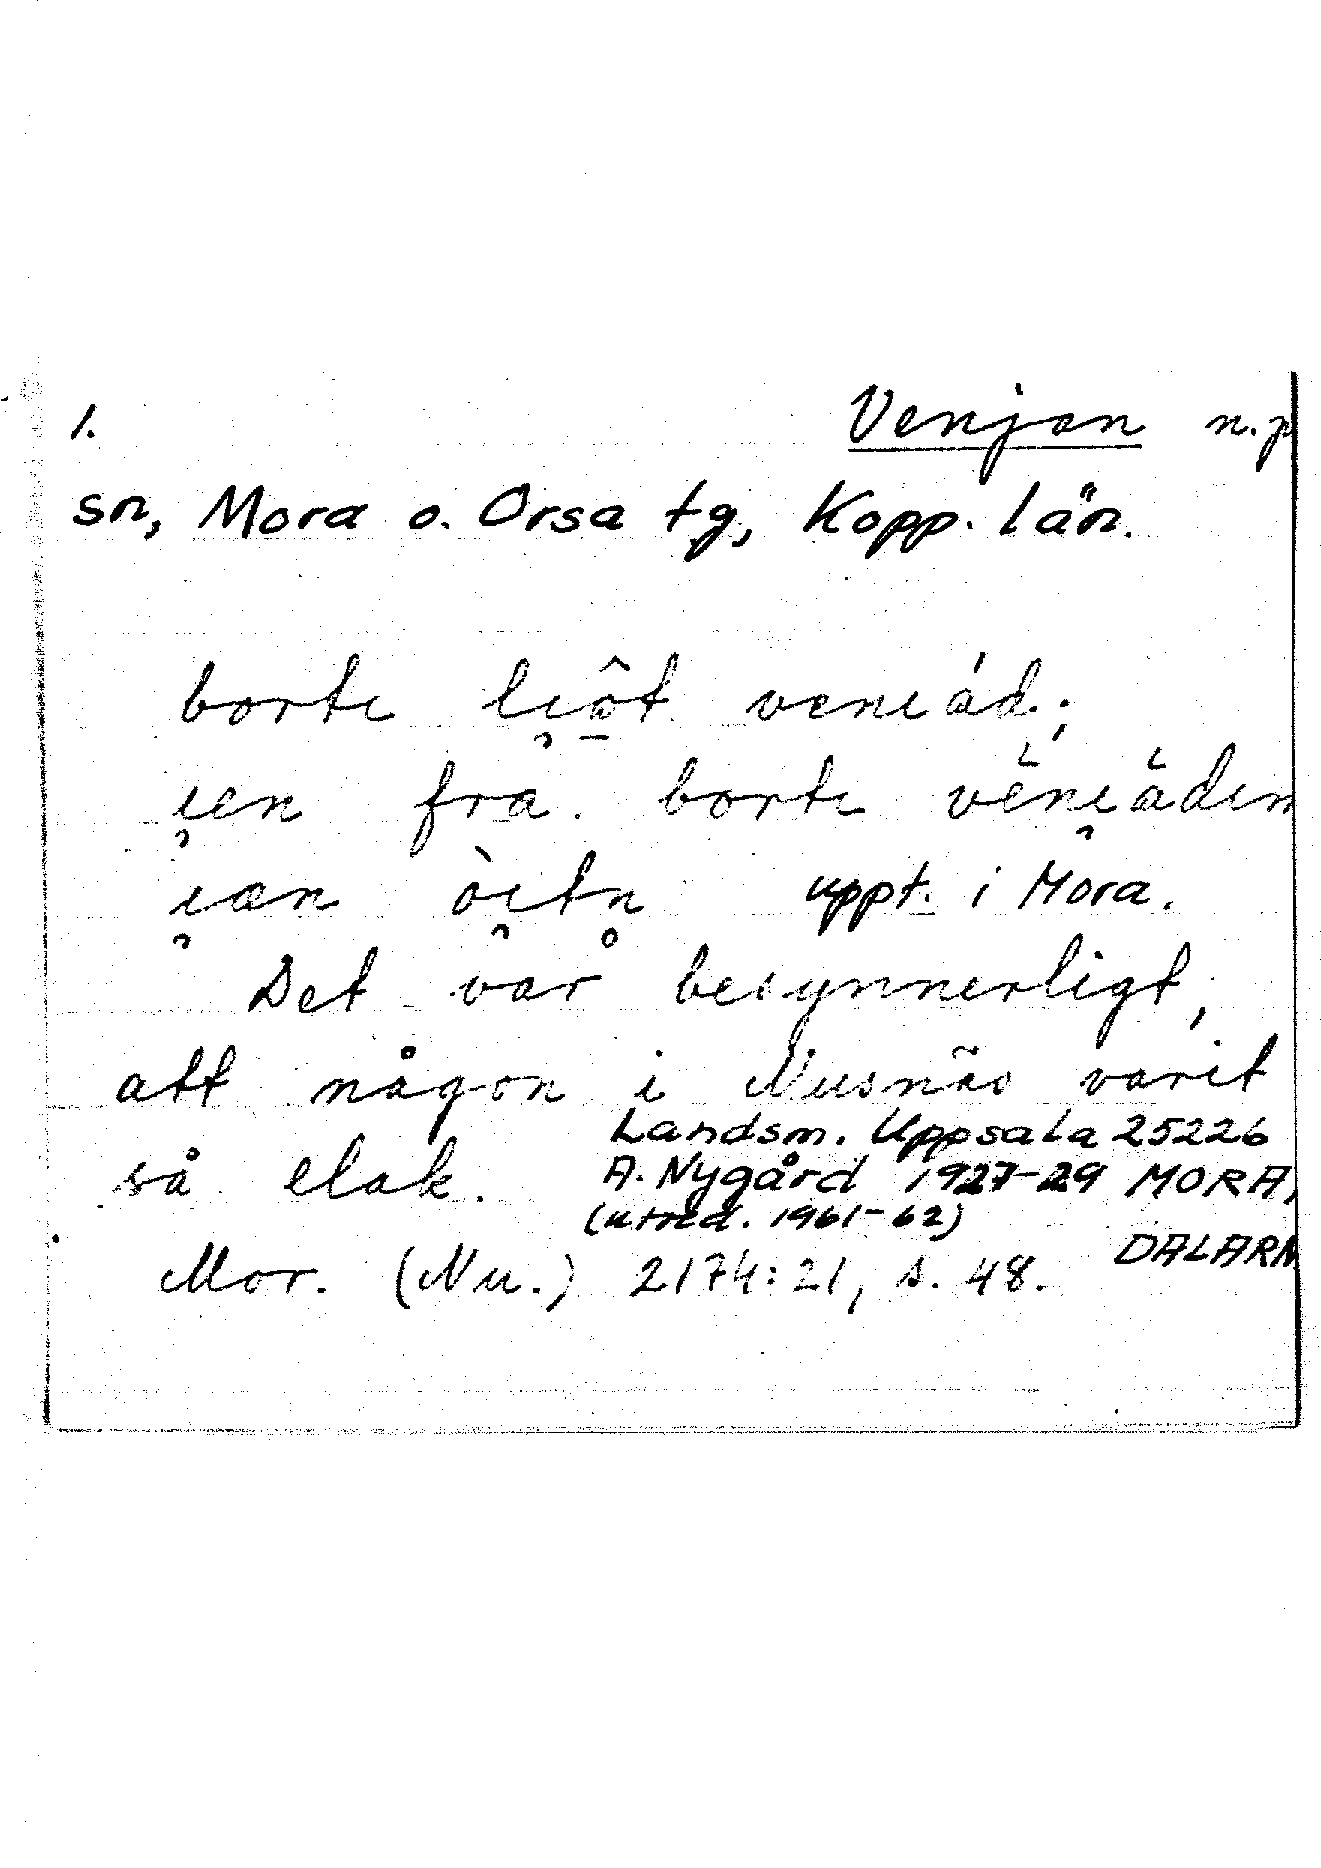 1. Venjan n.p
sn, Mora o. Orsa tg, Kopp. län.
bortɩ lɩ̯ôt venɩád.;
ɩ̯en fra. bortɩ vènɩ̯àdɩn
ɩ̯æn òɩ̯tn̥ uppt. i Mora.
Det var besynnerligt,
att någon i Nusnäs varit
så elak.
Landsm. Uppsala 25226
A. Nygård 1927-29 MORA,
(utred. 1961-62)
DALARN
Mor. (Nu.) 2174:21, s. 48.